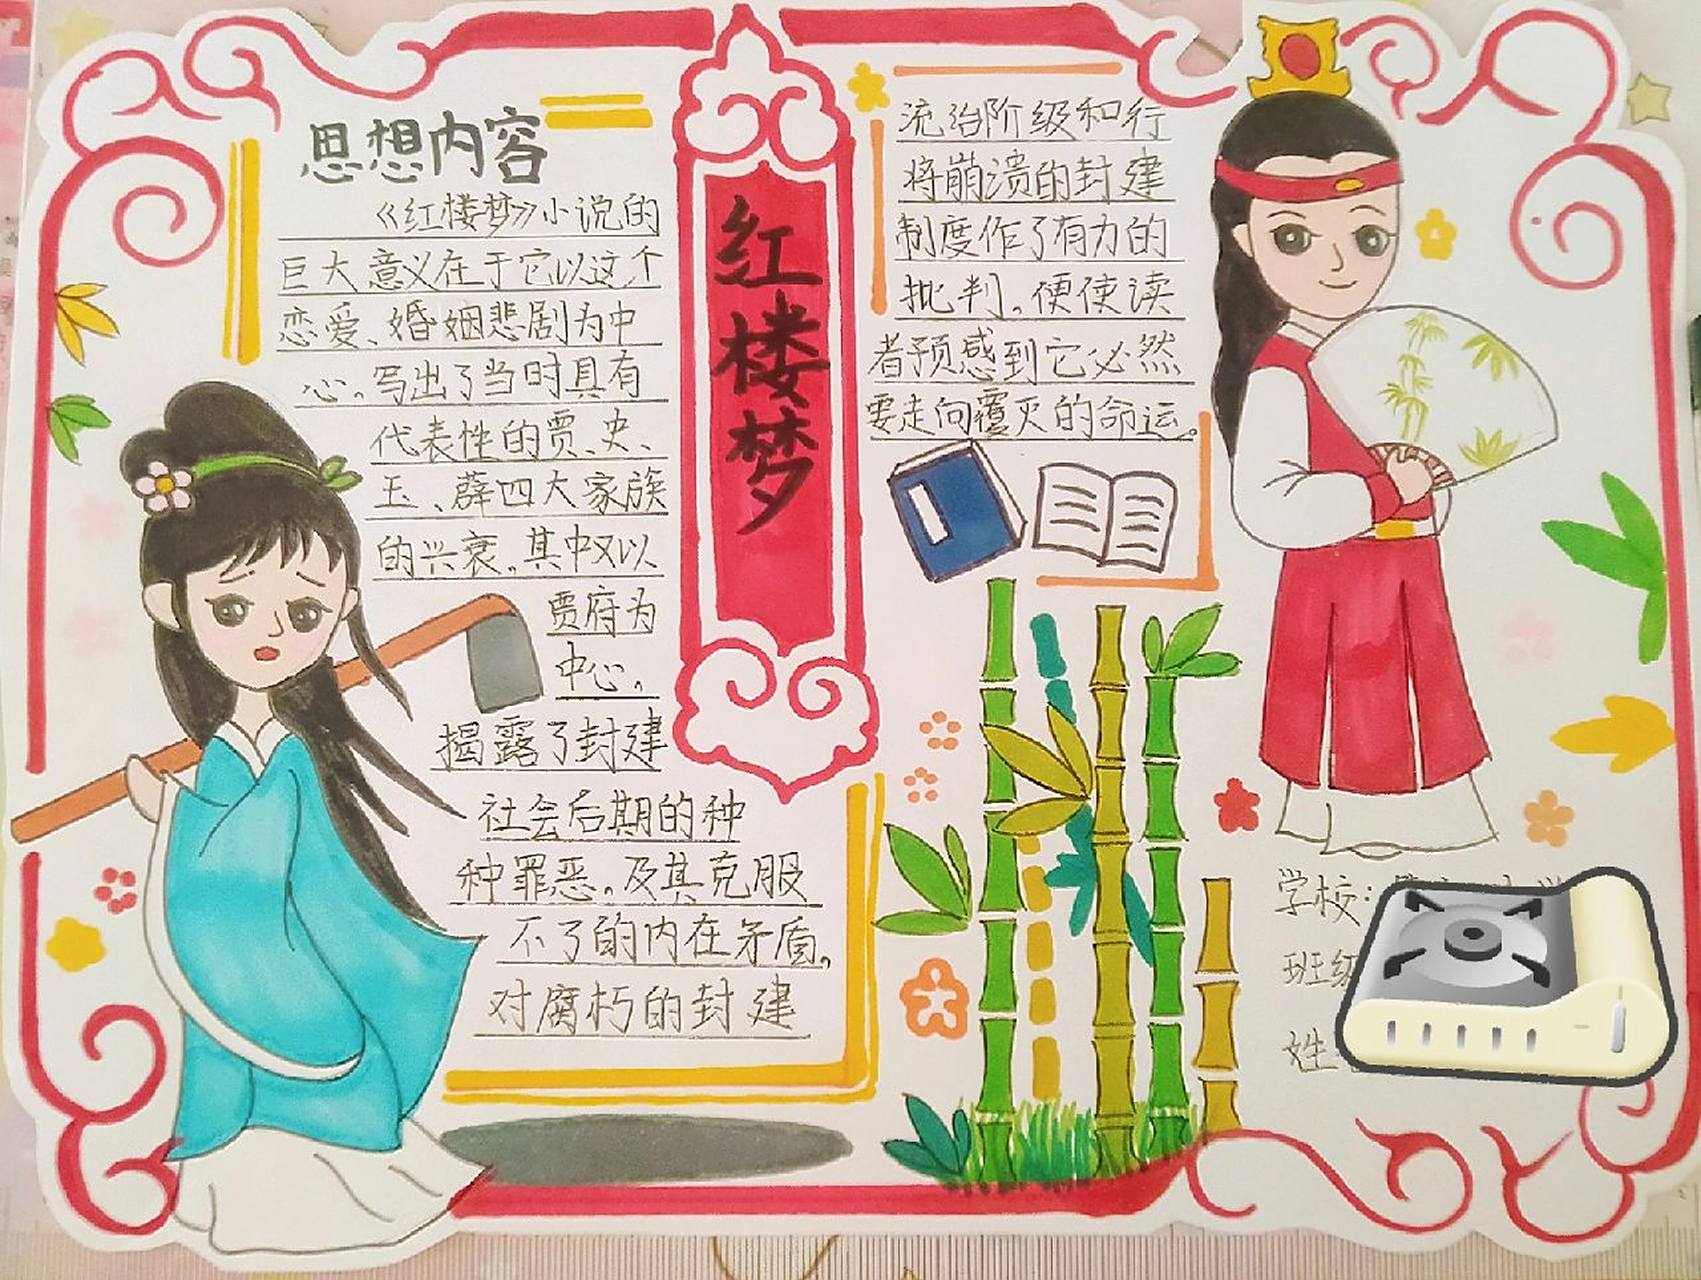 思想内容
《红楼梦》小说的
巨大意义在于它以这个
恋爱、婚姻悲剧为中
心。写出了当时具有
代表性的贾、史、
王、薛四大家族
的兴衰。其中又以
贾府为
中心。
揭露了封建
社会后期的种
种罪恶。及其克服
不了的内在矛盾。
对腐朽的封建
红楼梦
流治阶级和行
将崩溃的封建
制度作了有力的
批判。便使读
者预感到它必然
要走向覆灭的命运。
学校：
班级
姓